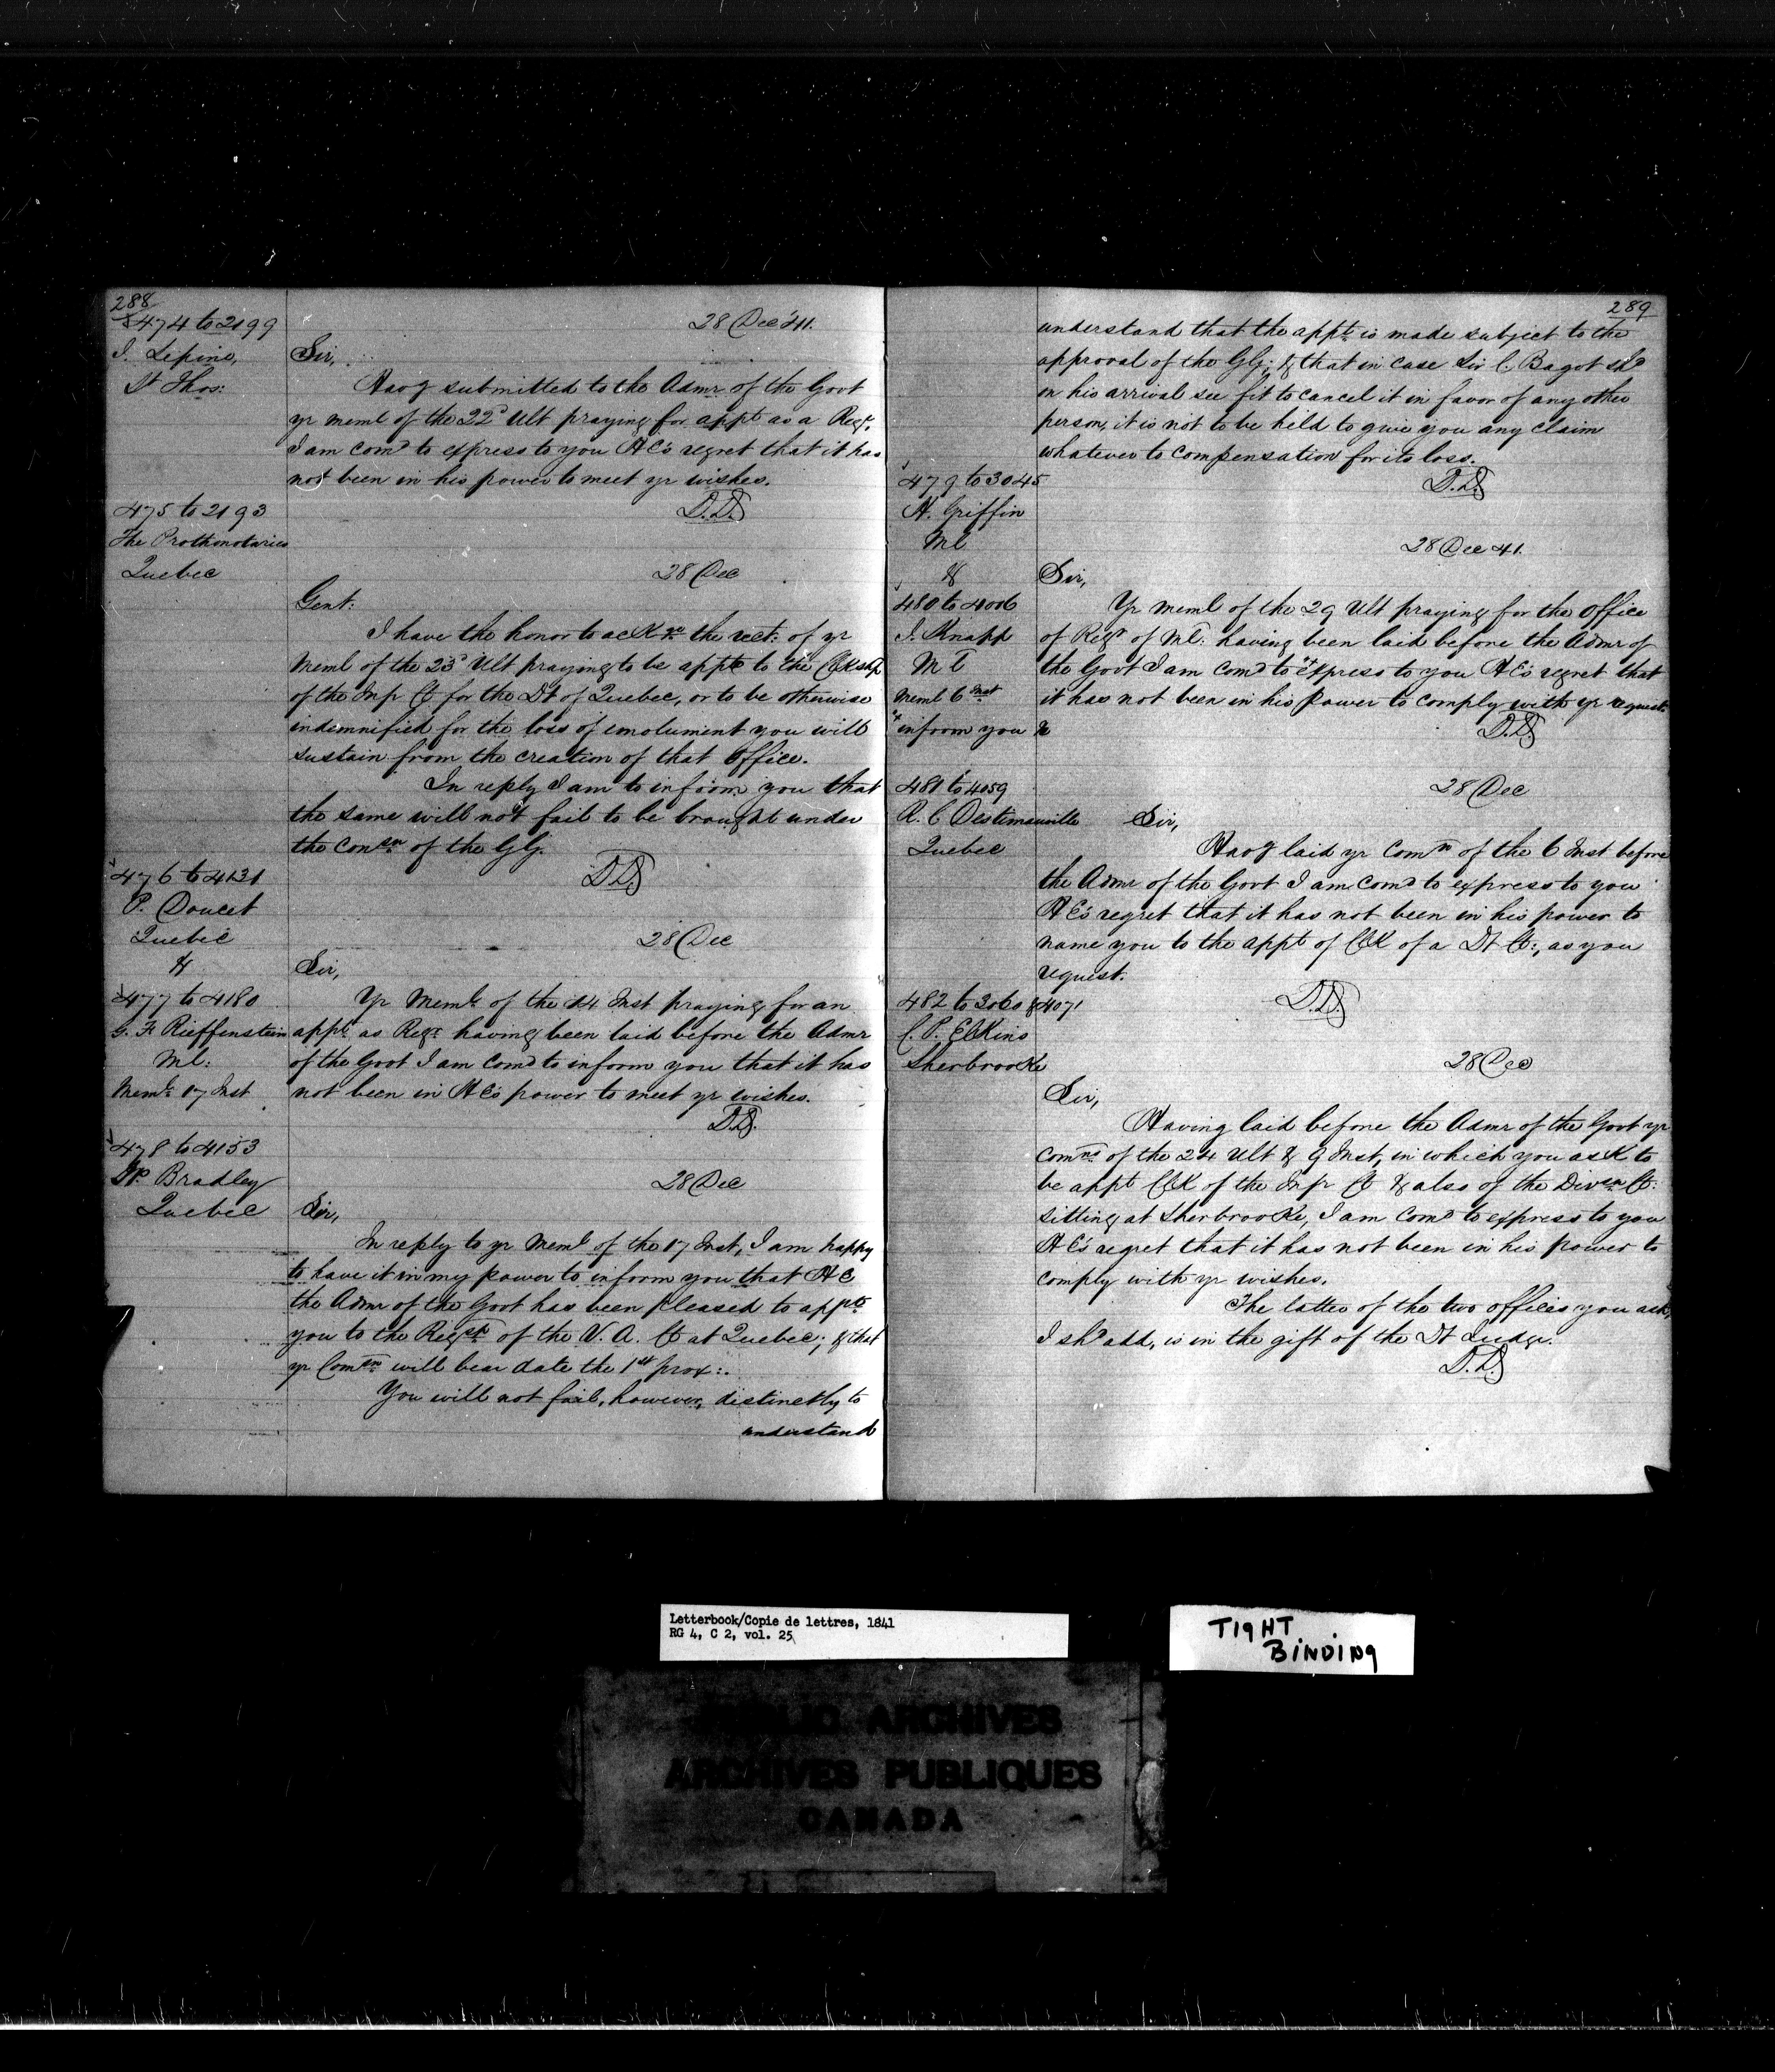 288
474 to 2199
J. Lepine,
St Thos:
28 Dec '41.
Sir,
Havg submitted to the Admr of the Govt
yr meml of the 22d Ult praying for appt as a Regr,
I am comd to express to you HE's regret that it has
not been in his power to meet yr wishes.
D.D.
475 to 2193
The Prothonotaries
Quebec
28 Dec
Gent:
I have the honor to ackn the rect: of yr
Meml of the 23d Ult praying to be appt to the Clkship
of the Inf Ct for the Dt of Quebec, or to be otherwise
indemnified for the loss of emolument you will
sustain from the creation of that office.
In reply I am to inform you that
the same will not fail to be brought under
the conon of the GG.
DD
476 to 4131
P. Doucet
Quebec
&
477 to 4180
G. F. Rieffenstein
Ml:
Meml 17 Inst
28 Dec
Sir,
Yr Meml of the 14 Inst praying for an
appt as Regr having been laid before the Admr
of the Govt I am comd to inform you that it has
not been in HE's power to meet yr wishes.
D.D.
478 to 4153
Bradley
Quebec
28 Dec
Sir,
In reply to yr Meml of the 17 Inst, I am happy
to have it in my power to inform you that HE
the Admr of the Govt has been pleased to appt
you to the Regshp of the V. A. Ct at Quebec; & that
yr Comon will bear date the 1st prox:.
You will not fail, however, distinctly to
understand
289
understand that the appt is made subject to the
approval of the GG; & that in case Sir C. Bagot shd
on his arrival see fit to cancel it in favor of any other
person, it is not to be held to give you any claim
whatever to compensation for its loss.
D.D.
479 to 3045
H. Griffin
Ml
&
480 to 4006
J. Knapp
Ml
Meml 6 Inst
"inform you &c
28 Dec 41.
Sir,
Yr meml of the 29 Ult praying for the office
of Regr of Ml: having been laid before the Admr of
the Govt I am comd to "express to you HE's regret that
it has not been in his power to comply with yr request.
D.D.
481 to 4059
R. C Destimauville
Quebec
28 Dec
Sir,
Havg laid yr Comn of the 6 Inst before
the Admr of the Govt I am comd to express to you
HE's regret that it has not been in his power to
name you to the appt of Clk of a Dt Ct:, as you
request.
D.D.
482 to 3060 & 4071
C. P. Elkins
Sherbrooke
28 Dec
Sir,
Having laid before the Admr of the Govt yr
Comns of the 24 Ult & 9 Inst, in which you ask to
be appt Clk of the Inf Ct & also of the Divon Ct:
sitting at Sherbrooke, I am comd to express to you
HE's regret that it has not been in his power to
comply with yr wishes.
The latter of the two offices you ask,
I shd add, is in the gift of the Dt Judge.
D.D.
Letterbook/Copie de lettres, 1841
RG 4, C 2, vol. 25
TIGHT
BINDING
PUBLIC ARCHIVES
ARCHIVES PUBLIQUES
CANADA